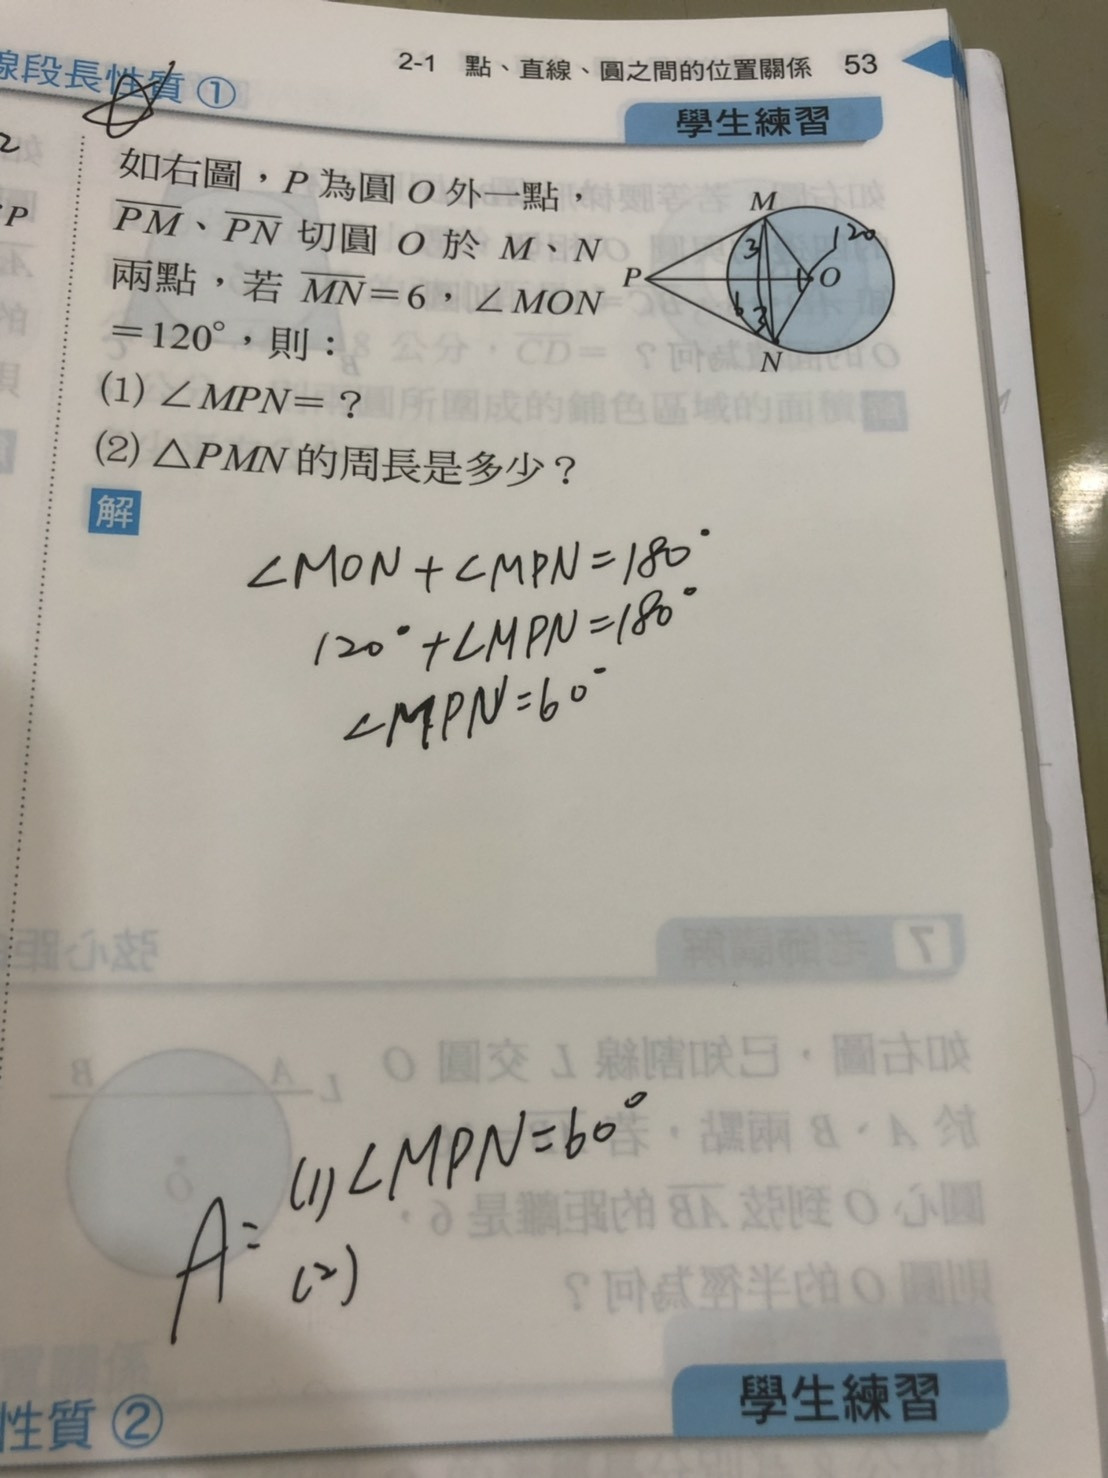 線段長性質 ①
2-1 點、直線、圓之間的位置關係 53
學生練習
如右圖，P 為圓 O 外一點，
PM、PN 切圓 O 於 M、N
兩點，若 MN=6，∠MON
=120°，則：
(1) ∠MPN=？
(2) △PMN 的周長是多少？
M
120
3
P
O
6
3
N
解
∠MON+∠MPN=180°
120°+∠MPN=180°
∠MPN=60°
A= (1) ∠MPN=60°
(2)
性質 ②
學生練習